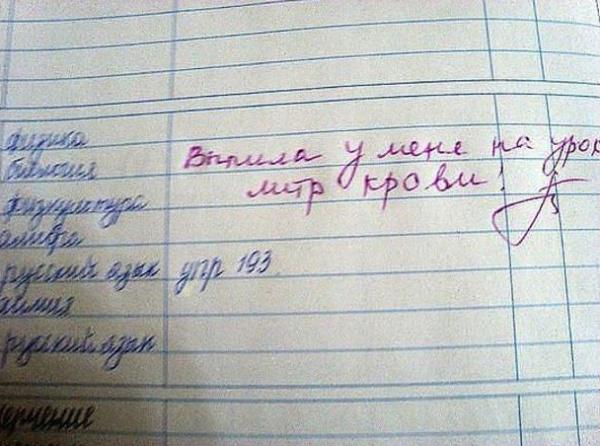 физика
биология
Выпила у мене на урок
литр крови!
физкультура
алгебра
русский язык упр 193.
химия
русский язык
черчение